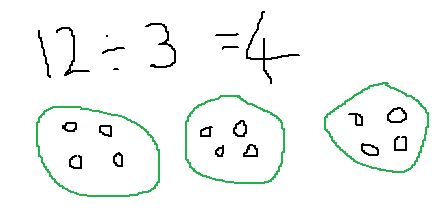 12 ÷ 3 = 4